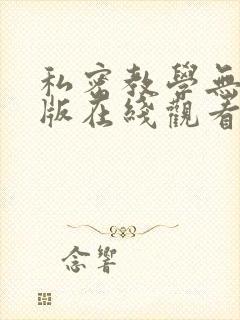 私密教學無
版在綫觀看
念響